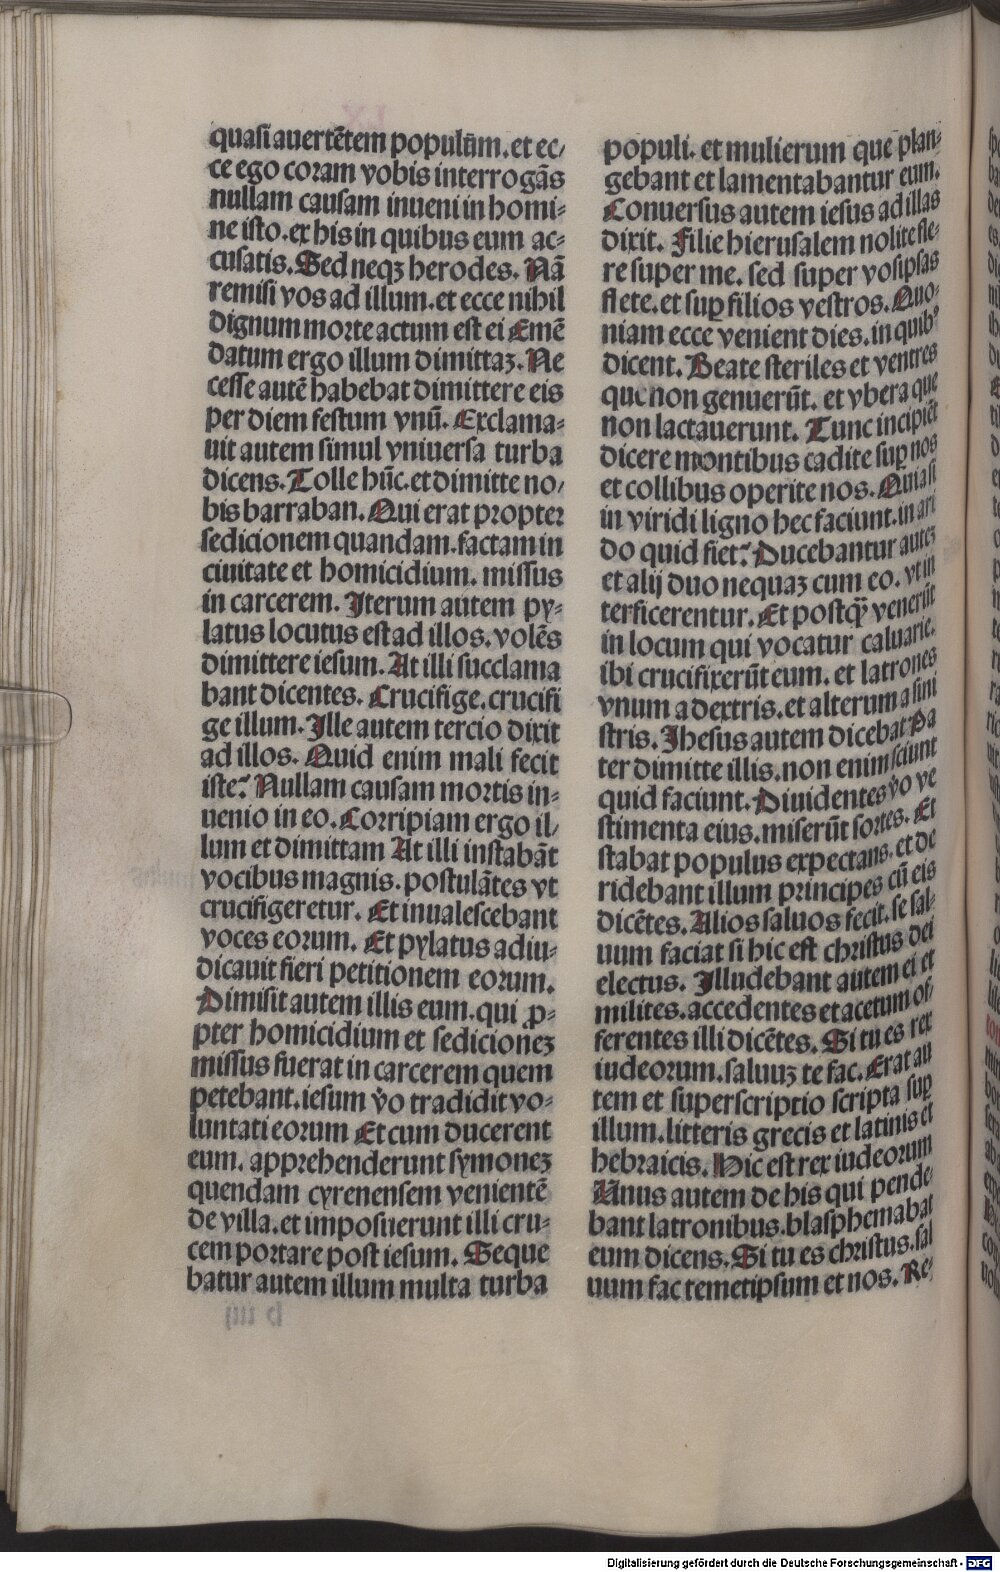 quasi auertētem populūm. et ec/
ce ego coram vobis interrogās
nullam causam inueni in homi-
ne isto. ex his in quibus eum ac-
cusatis. Sed neqꝫ herodes. Nā
remisi vos ad illum. et ecce nihil
dignum morte actum est ei Emē
datum ergo illum dimittaꝫ. Ne
cesse autē habebat dimittere eis
per diem festum vnū. Exclama-
uit autem simul vniuersa turba
dicens. Tolle hūc. et dimitte no/
bis barraban. Qui erat propter
sedicionem quandam. factam in
ciuitate et homicidium. missus
in carcerem. Iterum autem py-
latus locutus est ad illos. volēs
dimittere iesum. At illi succlama
bant dicentes. Crucifige. crucifi
ge illum. Ille autem tercio dixit
ad illos. Quid enim mali fecit
iste? Nullam causam mortis in-
uenio in eo. Corripiam ergo il/
lum et dimittam At illi instabāt
vocibus magnis. postulātes vt
crucifigeretur. Et inualescebant
voces eorum. Et pylatus adiu-
dicauit fieri petitionem eorum.
Dimisit autem illis eum. qui ꝓ-
pter homicidium et sedicioneꝫ
missus fuerat in carcerem quem
petebant. iesum v̊o tradidit vo-
luntati eorum Et cum ducerent
eum. apprehenderunt symoneꝫ
quendam cyrenensem venientē
de villa. et imposuerunt illi cru-
cem portare post iesum. Seque
batur autem illum multa turba
populi. et mulierum que plan-
gebant et lamentabantur eum.
Conuersus autem iesus ad illas
dixit. Filie hierusalem nolite fle-
re super me. sed super vos ipsas
flete. et suꝑ filios vestros. Quo-
niam ecce venient dies. in quibꝰ
dicent. Beate steriles et ventres
que non genuerūt. et vbera que
non lactauerunt. Tunc incipiēt
dicere montibus cadite suꝑ nos
et collibus operite nos. Quia si
in viridi ligno hec faciunt. in ari
do quid fiet? Ducebantur auteꝫ
et alij duo nequaꝫ cum eo. vt in
terficerentur. Et postq̃ venerūt
in locum qui vocatur caluarie.
ibi crucifixerūt eum. et latrones
vnum a dextris. et alterum a sini
stris. Ihesus autem dicebat Pa
ter dimitte illis. non enim sciunt
quid faciunt. Diuidentes v̊o ve
stimenta eius. miserūt sortes. Et
stabat populus expectans. et de
ridebant illum principes cū eis
dicētes. Alios saluos fecit. se sal-
uum faciat si hic est christus dei
electus. Illudebant autem ei et
milites. accedentes et acetum of/
ferentes illi dicētes. Si tu es rex
iudeorum. saluuꝫ te fac. Erat au
tem et superscriptio scripta suꝑ
illum. litteris grecis et latinis et
hebraicis. Hic est rex iudeorum
Unus autem de his qui pende-
bant latronibus. blasphemabat
eum dicens. Si tu es christus. sal
uum fac temetipsum et nos. Re-
Digitalisierung gefördert durch die Deutsche Forschungsgemeinschaft - DFG